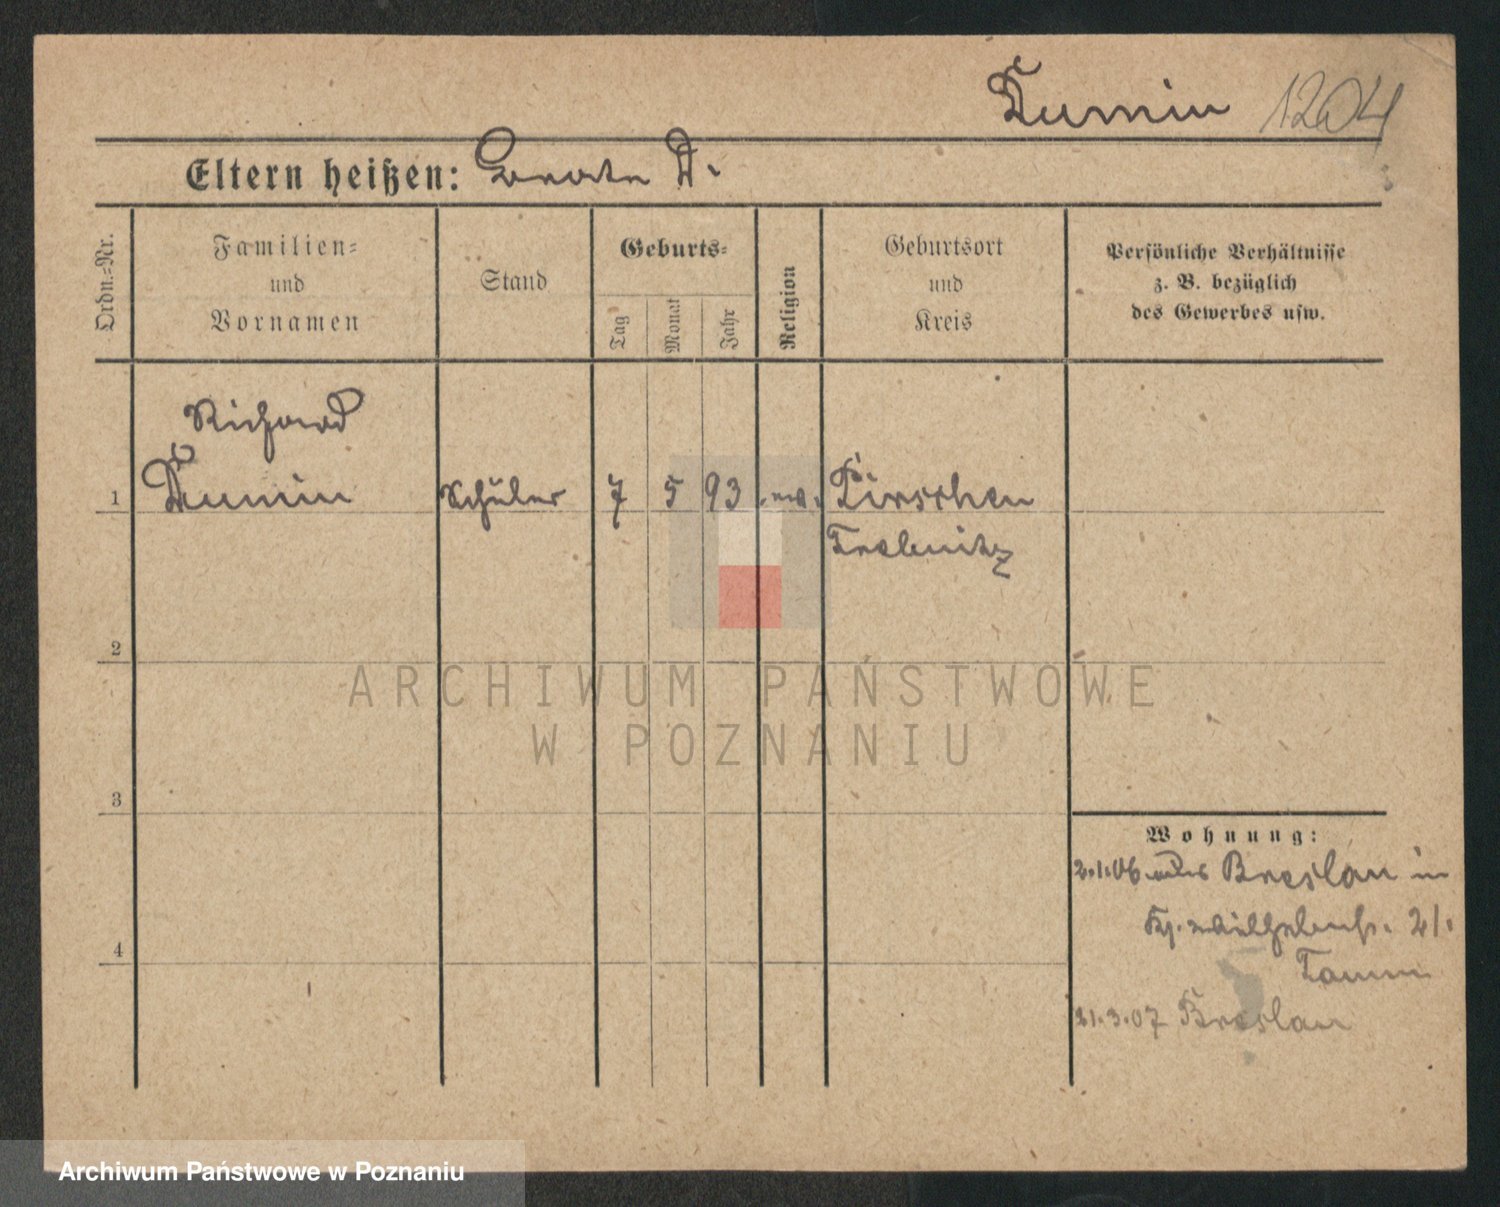 Dumin 1204
Eltern heißen: Beate D.
Ordn.-Nr.
Familien-
und
Vornamen
Stand
Geburts-
Tag
Monat
Jahr
Religion
Geburtsort
und
Kreis
Persönliche Verhältnisse
z. B. bezüglich
des Gewerbes usw.
Richard
1 Dumin Schüler 7 5 93 ev. Pirschen
Trebnitz
2
3
4
ARCHIWUM PAŃSTWOWE
W POZNANIU
Wohnung:
2.1.06 Breslau in
21.
Tamm
21.3.07 Breslau
Archiwum Państwowe w Poznaniu